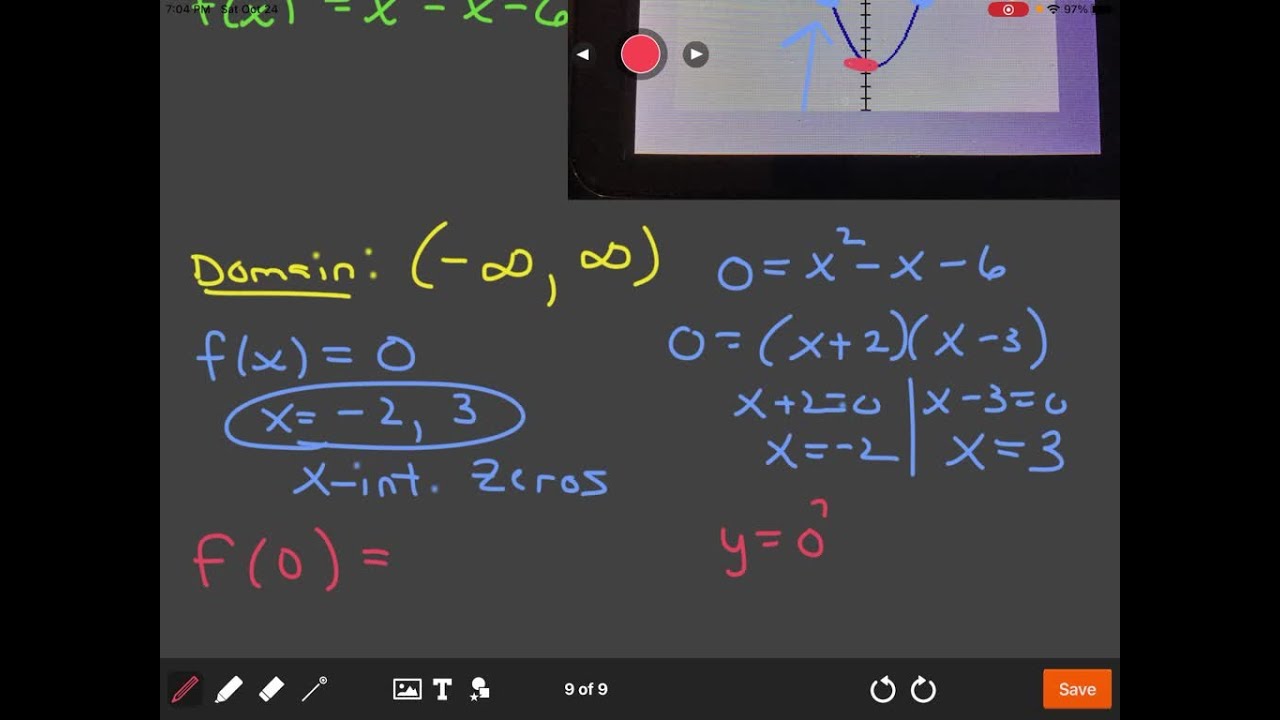 7:04 PM Sat Oct 24
97%
f(x) = x² - x - 6
Domain: (-∞, ∞)
0 = x² - x - 6
f(x) = 0
0 = (x+2)(x-3)
x = -2, 3
x+2=0 | x-3=0
x=-2 | x=3
x-int. Zeros
f(0) =
y = 0²
T
9 of 9
Save